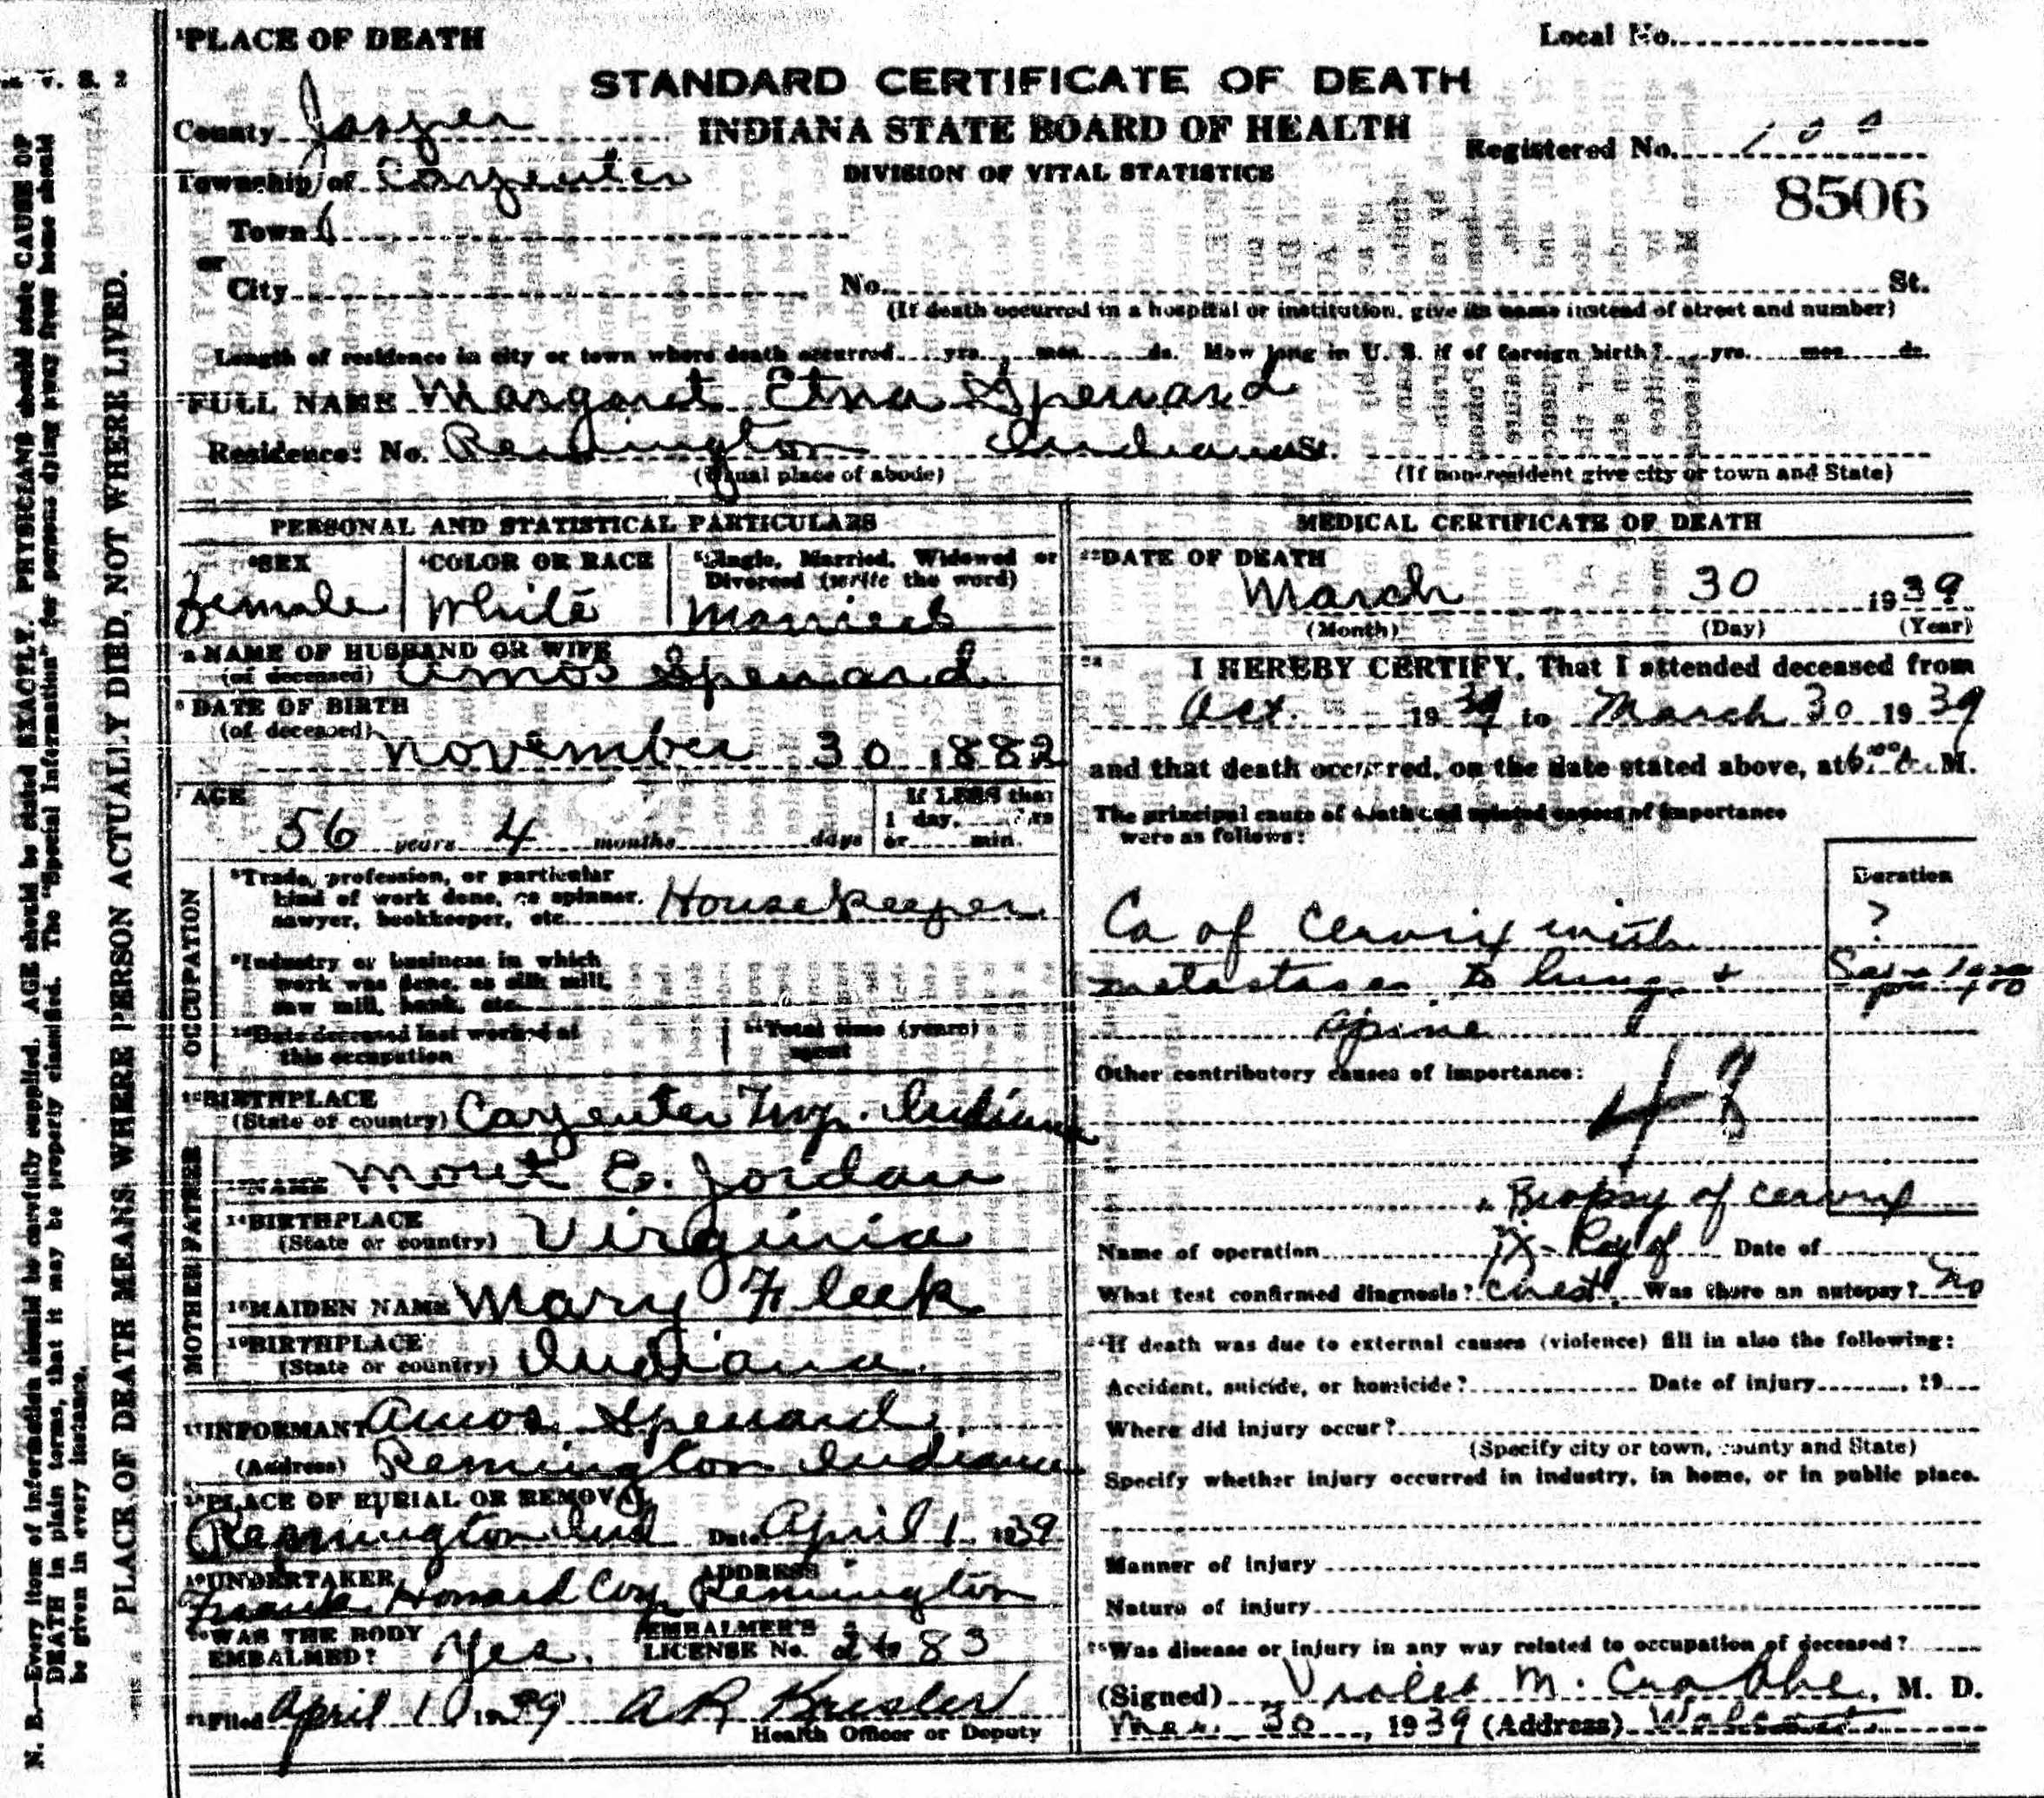 PLACE OF DEATH
Local No.
STANDARD CERTIFICATE OF DEATH
County Jasper
INDIANA STATE BOARD OF HEALTH
Registered No. 100
Township of Carpenter
DIVISION OF VITAL STATISTICS
8506
Town
or
City No. St.
(If death occurred in a hospital or institution, give its name instead of street and number)
Length of residence in city or town where death occurred yrs. mos. ds. How long in U. S. if of foreign birth? yrs. mos. ds.
FULL NAME Margaret Etna Spenard
Residence: No. Remington Indiana St.
(Usual place of abode) (If non-resident give city or town and State)
PERSONAL AND STATISTICAL PARTICULARS
SEX COLOR OR RACE Single, Married, Widowed or
Divorced (write the word)
female White Married
NAME OF HUSBAND OR WIFE
(of deceased) Amos Spenard
DATE OF BIRTH
(of deceased)
November 30 1882
AGE If LESS than
1 day, hrs
56 years 4 months days or min.
OCCUPATION
Trade, profession, or particular
kind of work done, as spinner,
sawyer, bookkeeper, etc. Housekeeper
Industry or business in which
work was done, as silk mill,
saw mill, bank, etc.
Date deceased last worked at
this occupation
Total time (years)
spent
BIRTHPLACE
(State or country) Carpenter Twp. Indiana
FATHER
NAME Mort E. Jordan
BIRTHPLACE
(State or country) Virginia
MOTHER
MAIDEN NAME Mary Fleek
BIRTHPLACE
(State or country) Indiana
INFORMANT Amos Spenard
(Address) Remington Indiana
PLACE OF BURIAL OR REMOVAL
Remington Ind Date April 1 1939
UNDERTAKER ADDRESS
Frank Howard Coy Remington
WAS THE BODY
EMBALMED? Yes.
EMBALMER'S
LICENSE No.
Filed April 1 1939 A R Kresler
Health Officer or Deputy
MEDICAL CERTIFICATE OF DEATH
DATE OF DEATH
March 30 1939
(Month) (Day) (Year)
I HEREBY CERTIFY, That I attended deceased from
Oct. 19 to March 30 1939
and that death occurred, on the date stated above, at 6:00 M.
The principal cause of death and related causes of importance
were as follows:
Duration
Ca of Cervix with ?
metastases to lung +
spine
Other contributory causes of importance:
48
+ Biopsy of cervix
Name of operation X-Ray of Date of
What test confirmed diagnosis? Chest. Was there an autopsy? No
If death was due to external causes (violence) fill in also the following:
Accident, suicide, or homicide? Date of injury , 19
Where did injury occur?
(Specify city or town, county and State)
Specify whether injury occurred in industry, in home, or in public place.
Manner of injury
Nature of injury
Was disease or injury in any way related to occupation of deceased?
(Signed) Violet M. Crabbe, M. D.
Mar. 30, 1939 (Address) Wolcott
N. B.—Every item of information should be carefully supplied. AGE should be stated EXACTLY. PHYSICIANS should state CAUSE OF
DEATH in plain terms, that it may be properly classified. The "Special Information" for persons dying away from home should
be given in every instance.
PLACE OF DEATH MEANS WHERE PERSON ACTUALLY DIED, NOT WHERE LIVED.